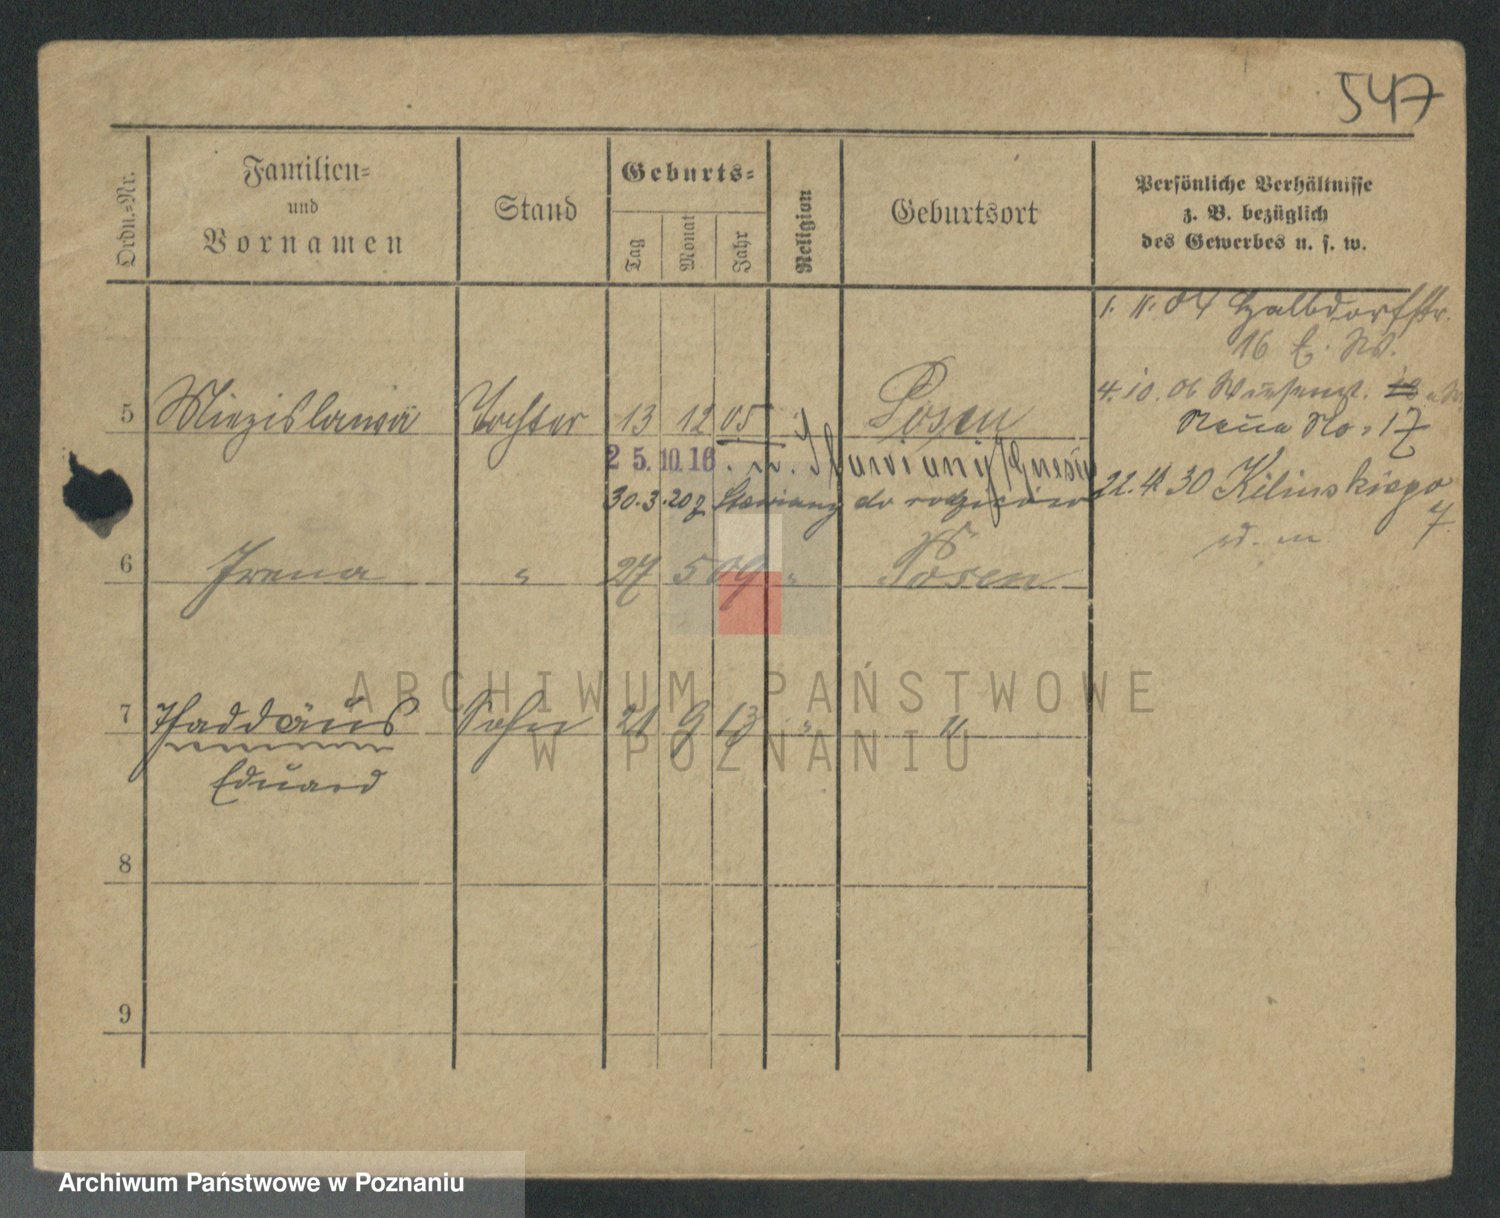 547
Ordn.-Nr.
Familien-
und
Vornamen
Stand
Geburts-
Tag
Monat
Jahr
Religion
Geburtsort
Persönliche Verhältnisse
z. B. bezüglich
des Gewerbes u. s. w.
1. 11. 04 Halbdorfstr.
16
5 Miezislawa Tochter 13 12 05 Posen
4. 10. 06
Neue No. 17
25.10.16. n.
30.3.20 z do rodziców
22. 4. 30 Kilinskiego
7
6 Irena " 27 5 09 " Posen
7 Thaddäus Sohn 21 9 13 " "
Eduard
8
9
ARCHIWUM PAŃSTWOWE
W POZNANIU
Archiwum Państwowe w Poznaniu